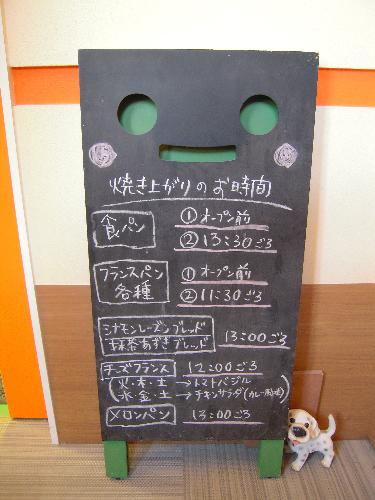 焼き上がりのお時間
食パン
①オープン前
②13:30ごろ
フランスパン
各種
①オープン前
②11:30ごろ
シナモンレーズンブレッド
抹茶あずきブレッド
13:00ごろ
チーズフランス 12:00ごろ
火・木・土→トマトバジル
水・金・土→チキンサラダ(カレー風味)
メロンパン 13:00ごろ